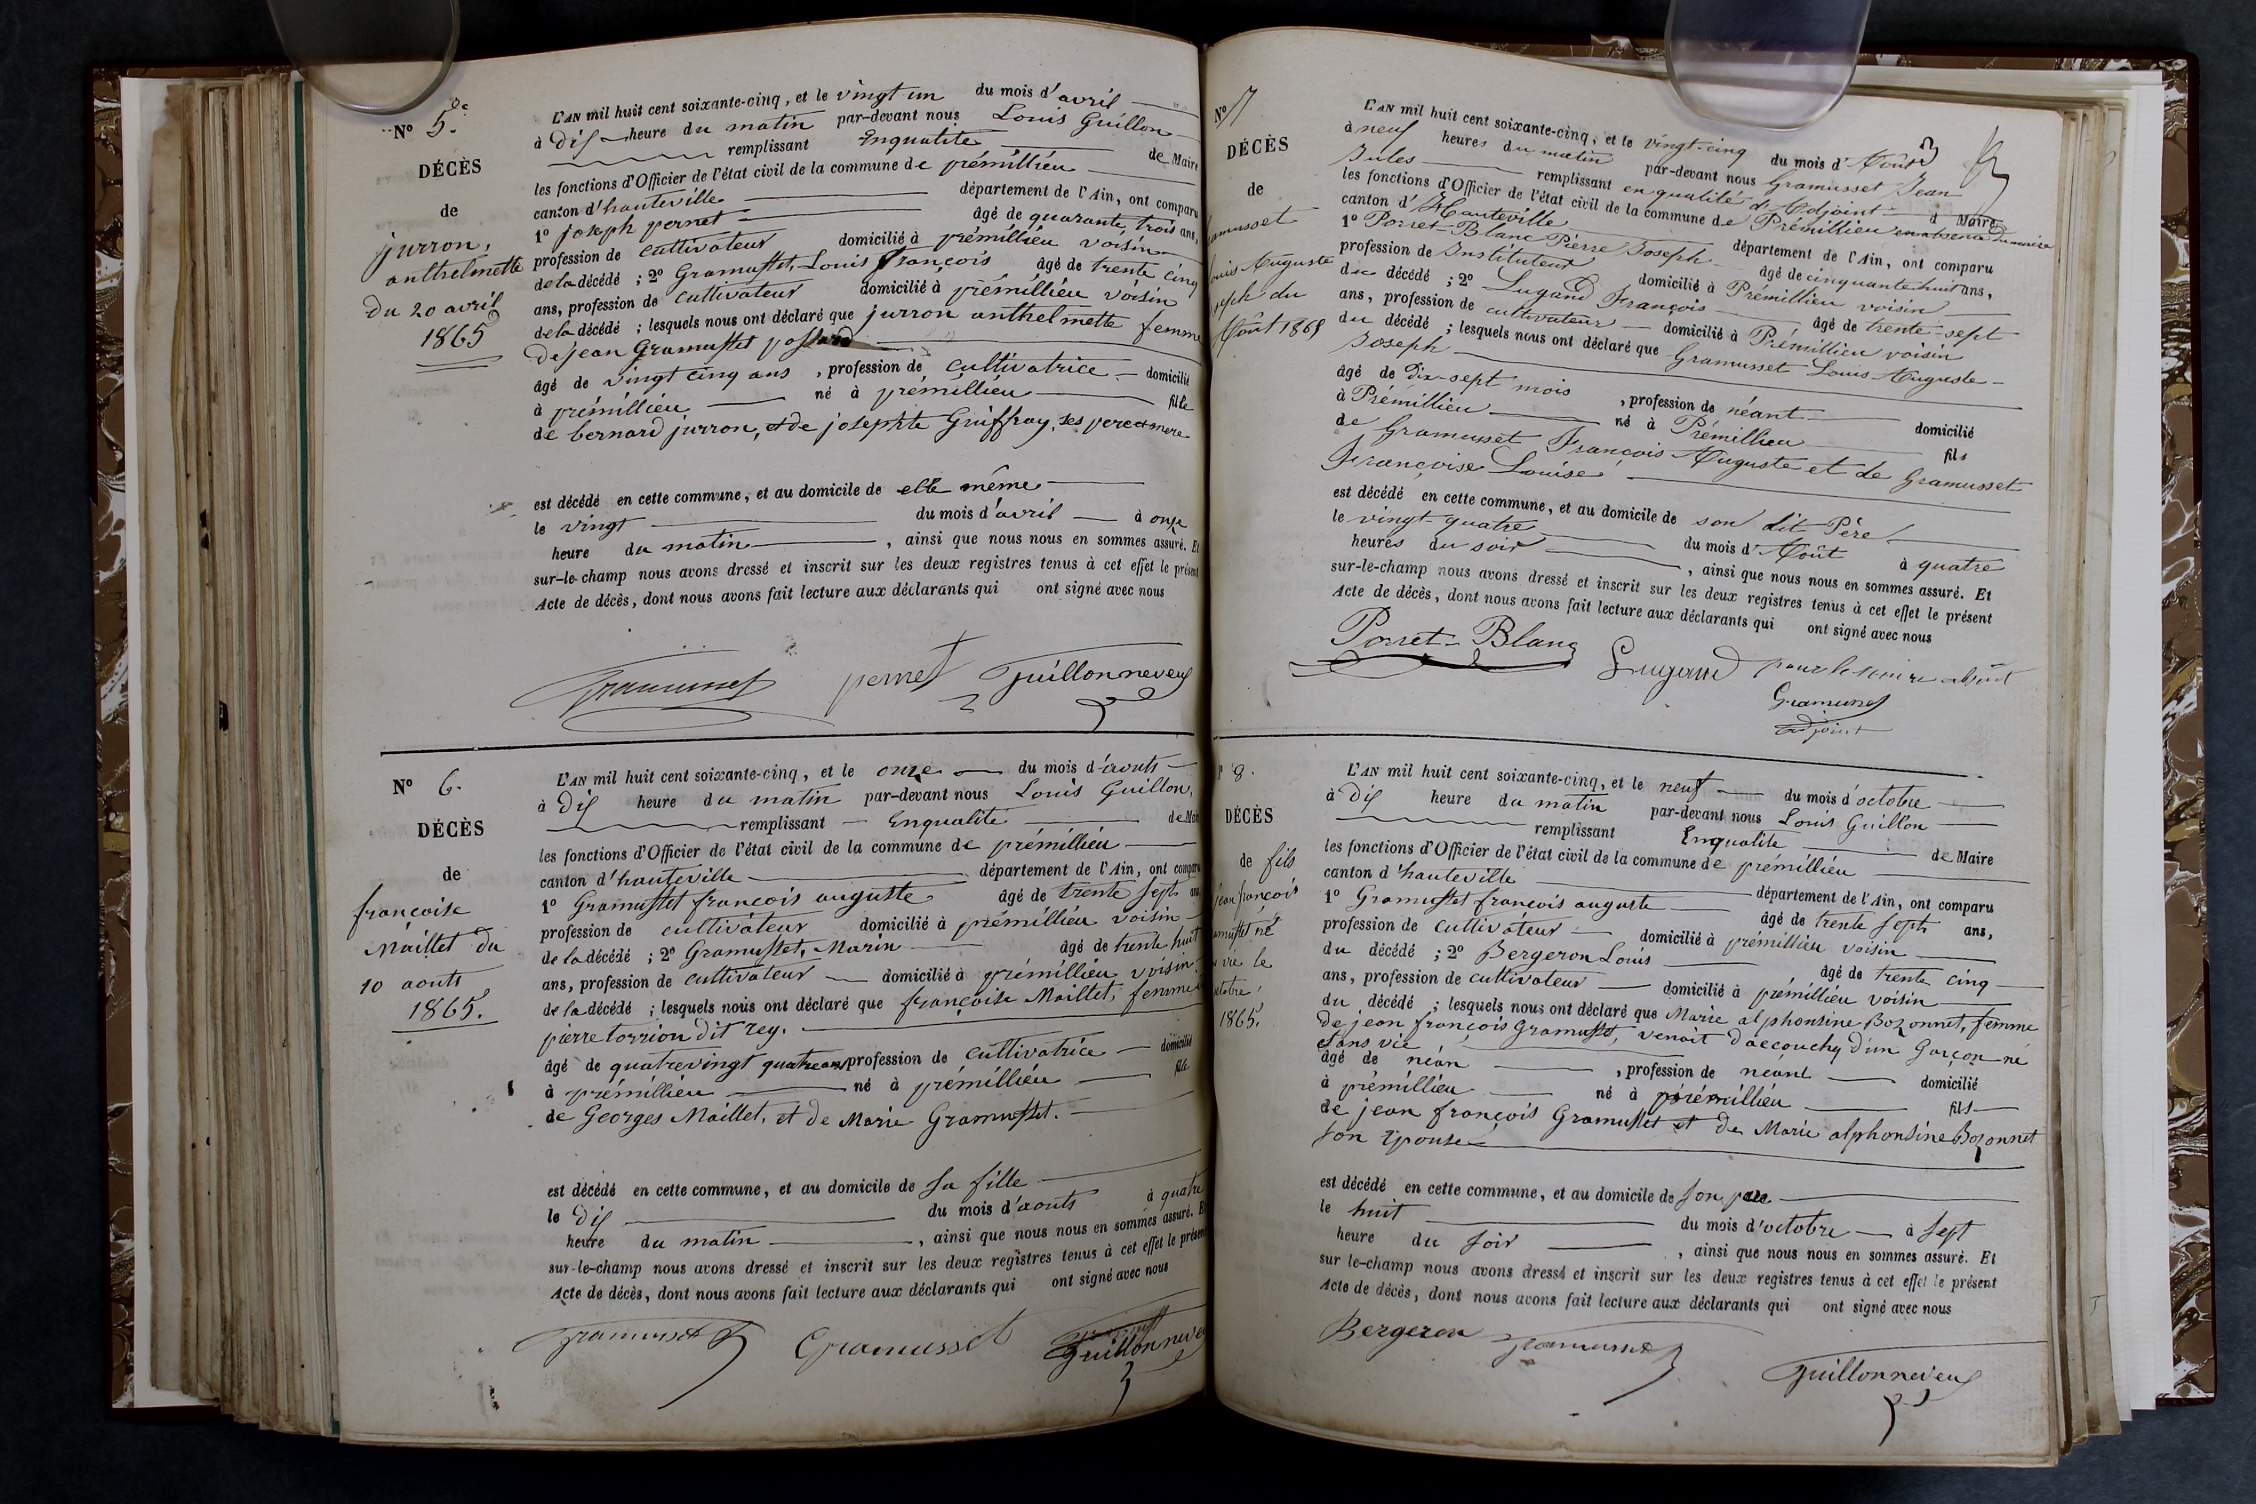 N° 5.
DÉCÈS
de
jurron,
anthelmette
du 20 avril
1865
L'AN mil huit cent soixante-cinq, et le vingt un du mois d'avril
à dix heure du matin par-devant nous Louis Guillon
remplissant Enqualité de Maire
les fonctions d'Officier de l'état civil de la commune de prémillieu
canton d'hauteville département de l'Ain, ont comparu
1° joseph pernet âgé de quarante, trois ans,
profession de cultivateur domicilié à prémillieu voisin
de la décédé ; 2° Gramusset, Louis françois âgé de trente cinq
ans, profession de cultivateur domicilié à prémillieu voisin
de la décédé ; lesquels nous ont déclaré que jurron anthelmette femme
de jean Gramusset
âgé de vingt cinq ans , profession de cultivatrice domicilié
à prémillieu né à prémillieu fille
de bernard jurron, et de josephte Griffray, ses pere et mere
est décédé en cette commune, et au domicile de elle même
le vingt du mois d'avril à onze
heure du matin , ainsi que nous nous en sommes assuré. Et
sur-le-champ nous avons dressé et inscrit sur les deux registres tenus à cet effet le présent
Acte de décès, dont nous avons fait lecture aux déclarants qui ont signé avec nous
Gramusset pernet Guillon neveu
N° 6.
DÉCÈS
de
françoise
Maillet du
10 aouts
1865.
L'AN mil huit cent soixante-cinq, et le onze du mois d'aouts
à dix heure du matin par-devant nous Louis Guillon,
remplissant Enqualité de Maire
les fonctions d'Officier de l'état civil de la commune de prémillieu
canton d'hauteville département de l'Ain, ont comparu
1° Gramusset francois auguste âgé de trente sept ans
profession de cultivateur domicilié à prémillieu voisin
de la décédé ; 2° Gramusset, Marin âgé de trente huit
ans, profession de cultivateur domicilié à prémillieu voisin
de la décédé ; lesquels nous ont déclaré que françoise Maillet, femme
pierre torrion dit rey.
âgé de quatrevingt quatre ans profession de cultivatrice domicilié
à prémillieu né à prémillieu fille
de Georges Maillet, et de Marie Gramusset.
est décédé en cette commune, et au domicile de sa fille
le dix du mois d'aouts à quatre
heure du matin , ainsi que nous nous en sommes assuré. Et
sur-le-champ nous avons dressé et inscrit sur les deux registres tenus à cet effet le présent
Acte de décès, dont nous avons fait lecture aux déclarants qui ont signé avec nous
Gramusset Gramusset Guillon neveu
N° 7
DÉCÈS
de
amusset
ouis Auguste
seph du
Août 1865
L'AN mil huit cent soixante-cinq, et le vingt-cinq du mois d'Août
à neuf heures du matin par-devant nous Gramusset Jean
Jules remplissant en qualité d'Adjoint d Maire
les fonctions d'Officier de l'état civil de la commune de Prémillieu en absence du maire
canton d'Hauteville département de l'Ain, ont comparu
1° Porret-Blanc Pierre Joseph âgé de cinquante huit ans,
profession de Instituteur domicilié à Prémillieu voisin
du décédé ; 2° Lugand François âgé de trente-sept
ans, profession de cultivateur domicilié à Prémillieu voisin
du décédé ; lesquels nous ont déclaré que Gramusset Louis-Auguste-
Joseph
âgé de Dix-sept mois , profession de néant domicilié
à Prémillieu né à Prémillieu fils
de Gramusset François Auguste et de Gramusset
Françoise Louise
est décédé en cette commune, et au domicile de son dit Père
le vingt-quatre du mois d'Août à quatre
heures du soir , ainsi que nous nous en sommes assuré. Et
sur-le-champ nous avons dressé et inscrit sur les deux registres tenus à cet effet le présent
Acte de décès, dont nous avons fait lecture aux déclarants qui ont signé avec nous
Porret-Blanc Lugand pour le maire absent
Gramusset
adjoint
8.
DÉCÈS
de fils
jean françois
amusset né
vie le
octobre,
1865.
L'AN mil huit cent soixante-cinq, et le neuf du mois d'octobre
à dix heure du matin par-devant nous Louis Guillon
remplissant Enqualité de Maire
les fonctions d'Officier de l'état civil de la commune de prémillieu
canton d'hauteville département de l'Ain, ont comparu
1° Gramusset francois auguste âgé de trente sept ans,
profession de cultivateur domicilié à prémillieu voisin
du décédé ; 2° Bergeron Louis âgé de trente cinq
ans, profession de cultivateur domicilié à prémillieu voisin
du décédé ; lesquels nous ont déclaré que Marie alphonsine Bozonnet, femme
de jean françois Gramusset, venoit d'accouchy d'un Garçon né
sans vie
âgé de néan , profession de néant domicilié
à prémillieu né à prémillieu fils
de jean françois Gramusset et de Marie alphonsine Bozonnet
son épouse
est décédé en cette commune, et au domicile de son père
le huit du mois d'octobre à sept
heure du soir , ainsi que nous nous en sommes assuré. Et
sur le-champ nous avons dressé et inscrit sur les deux registres tenus à cet effet le présent
Acte de décès, dont nous avons fait lecture aux déclarants qui ont signé avec nous
Bergeron Gramusset
Guillon neveu